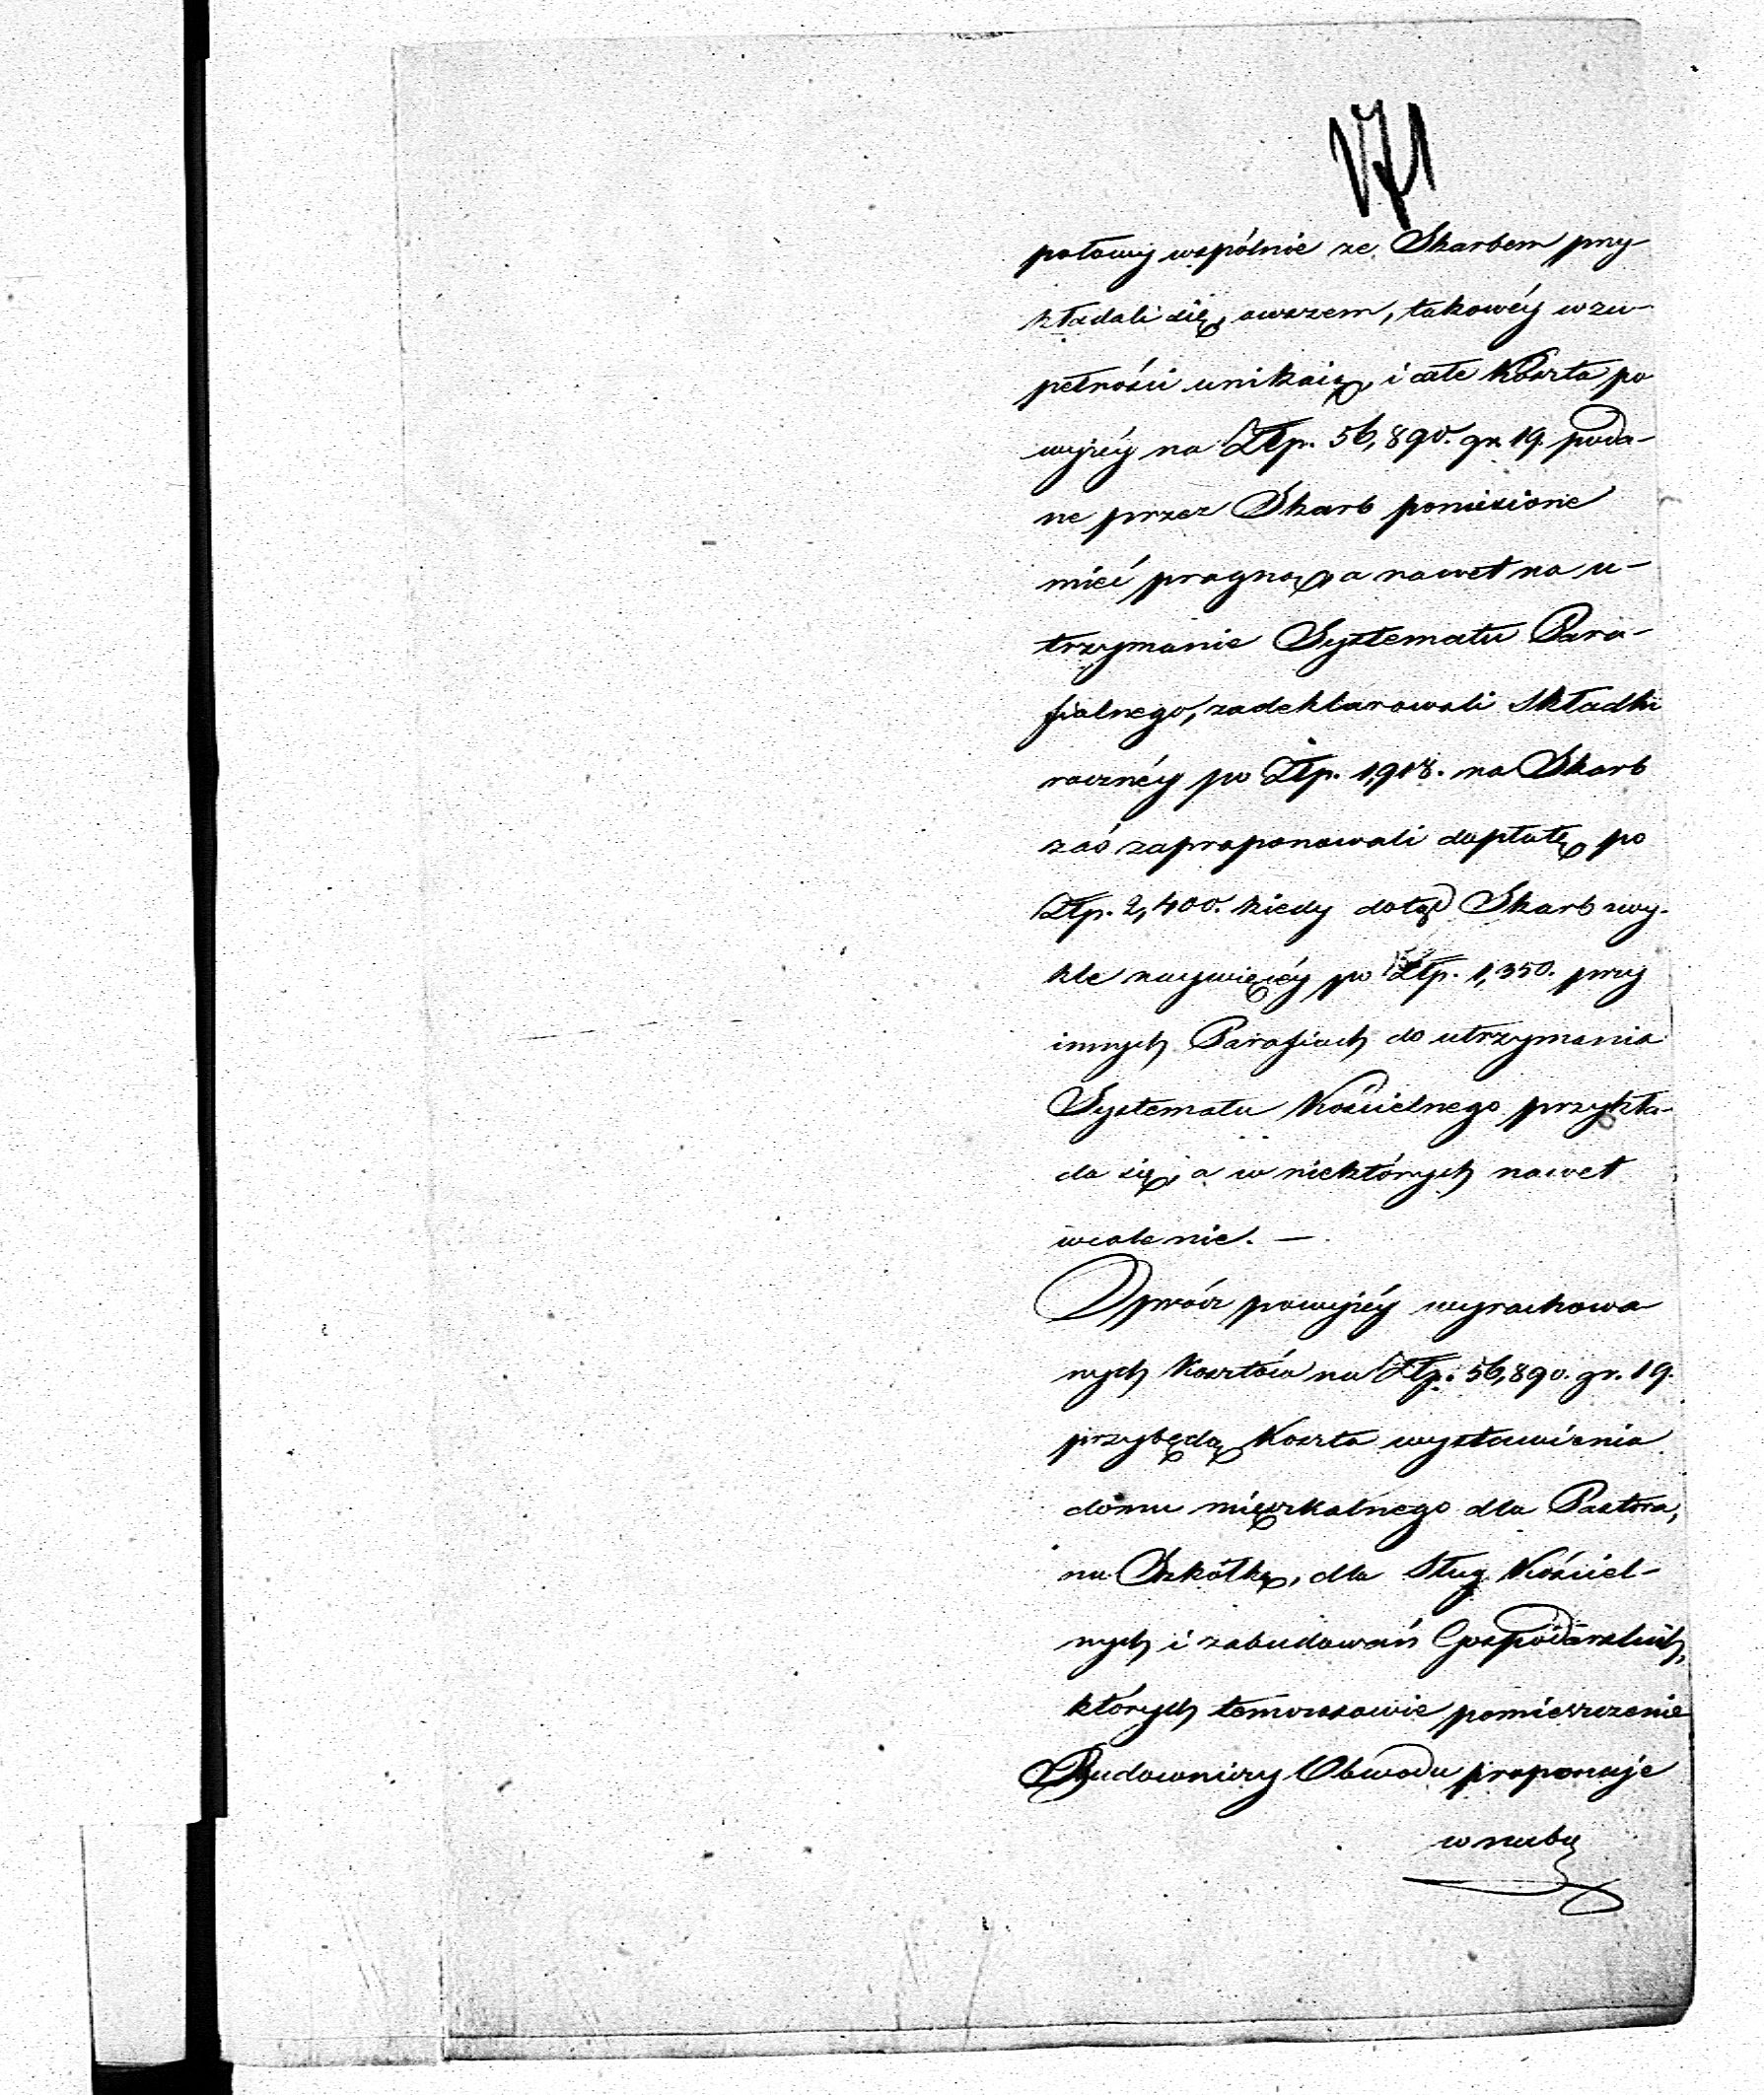 171
połowy wspólnie ze Skarbem przy-
kładali się, owszem, takowéy w zu-
pełności unikaią, i całe Koszta po
wyżéy na Złp. 56,890. gr. 19. poda-
ne przez Skarb poniesione
mieć pragną, a nawet na u-
trzymanie Systematu Para-
fialnego, zadeklarowali Składki
rocznéy po Złp. 1,918. na Skarb
zaś zaproponowali dopłatę po
Złp. 2,400. kiedy dotąd Skarb zwy-
kle naywięcéy po Złp. 1,350. przy
innych Parafiach do utrzymania
Systematu Kościelnego przykła-
da się, a w niektórych nawet
wcale nie. —
Oprócz powyżéy wyrachowa
nych Kosztów na Złp. 56,890. gr. 19.
przybędą Koszta wystawienia
domu mieszkalnego dla Pastora,
na Szkółkę, dla Sług Kościel-
nych i zabudowań Gospodarskich,
których tymczasowie pomieszczenie
Budowniczy Obwodu proponuje